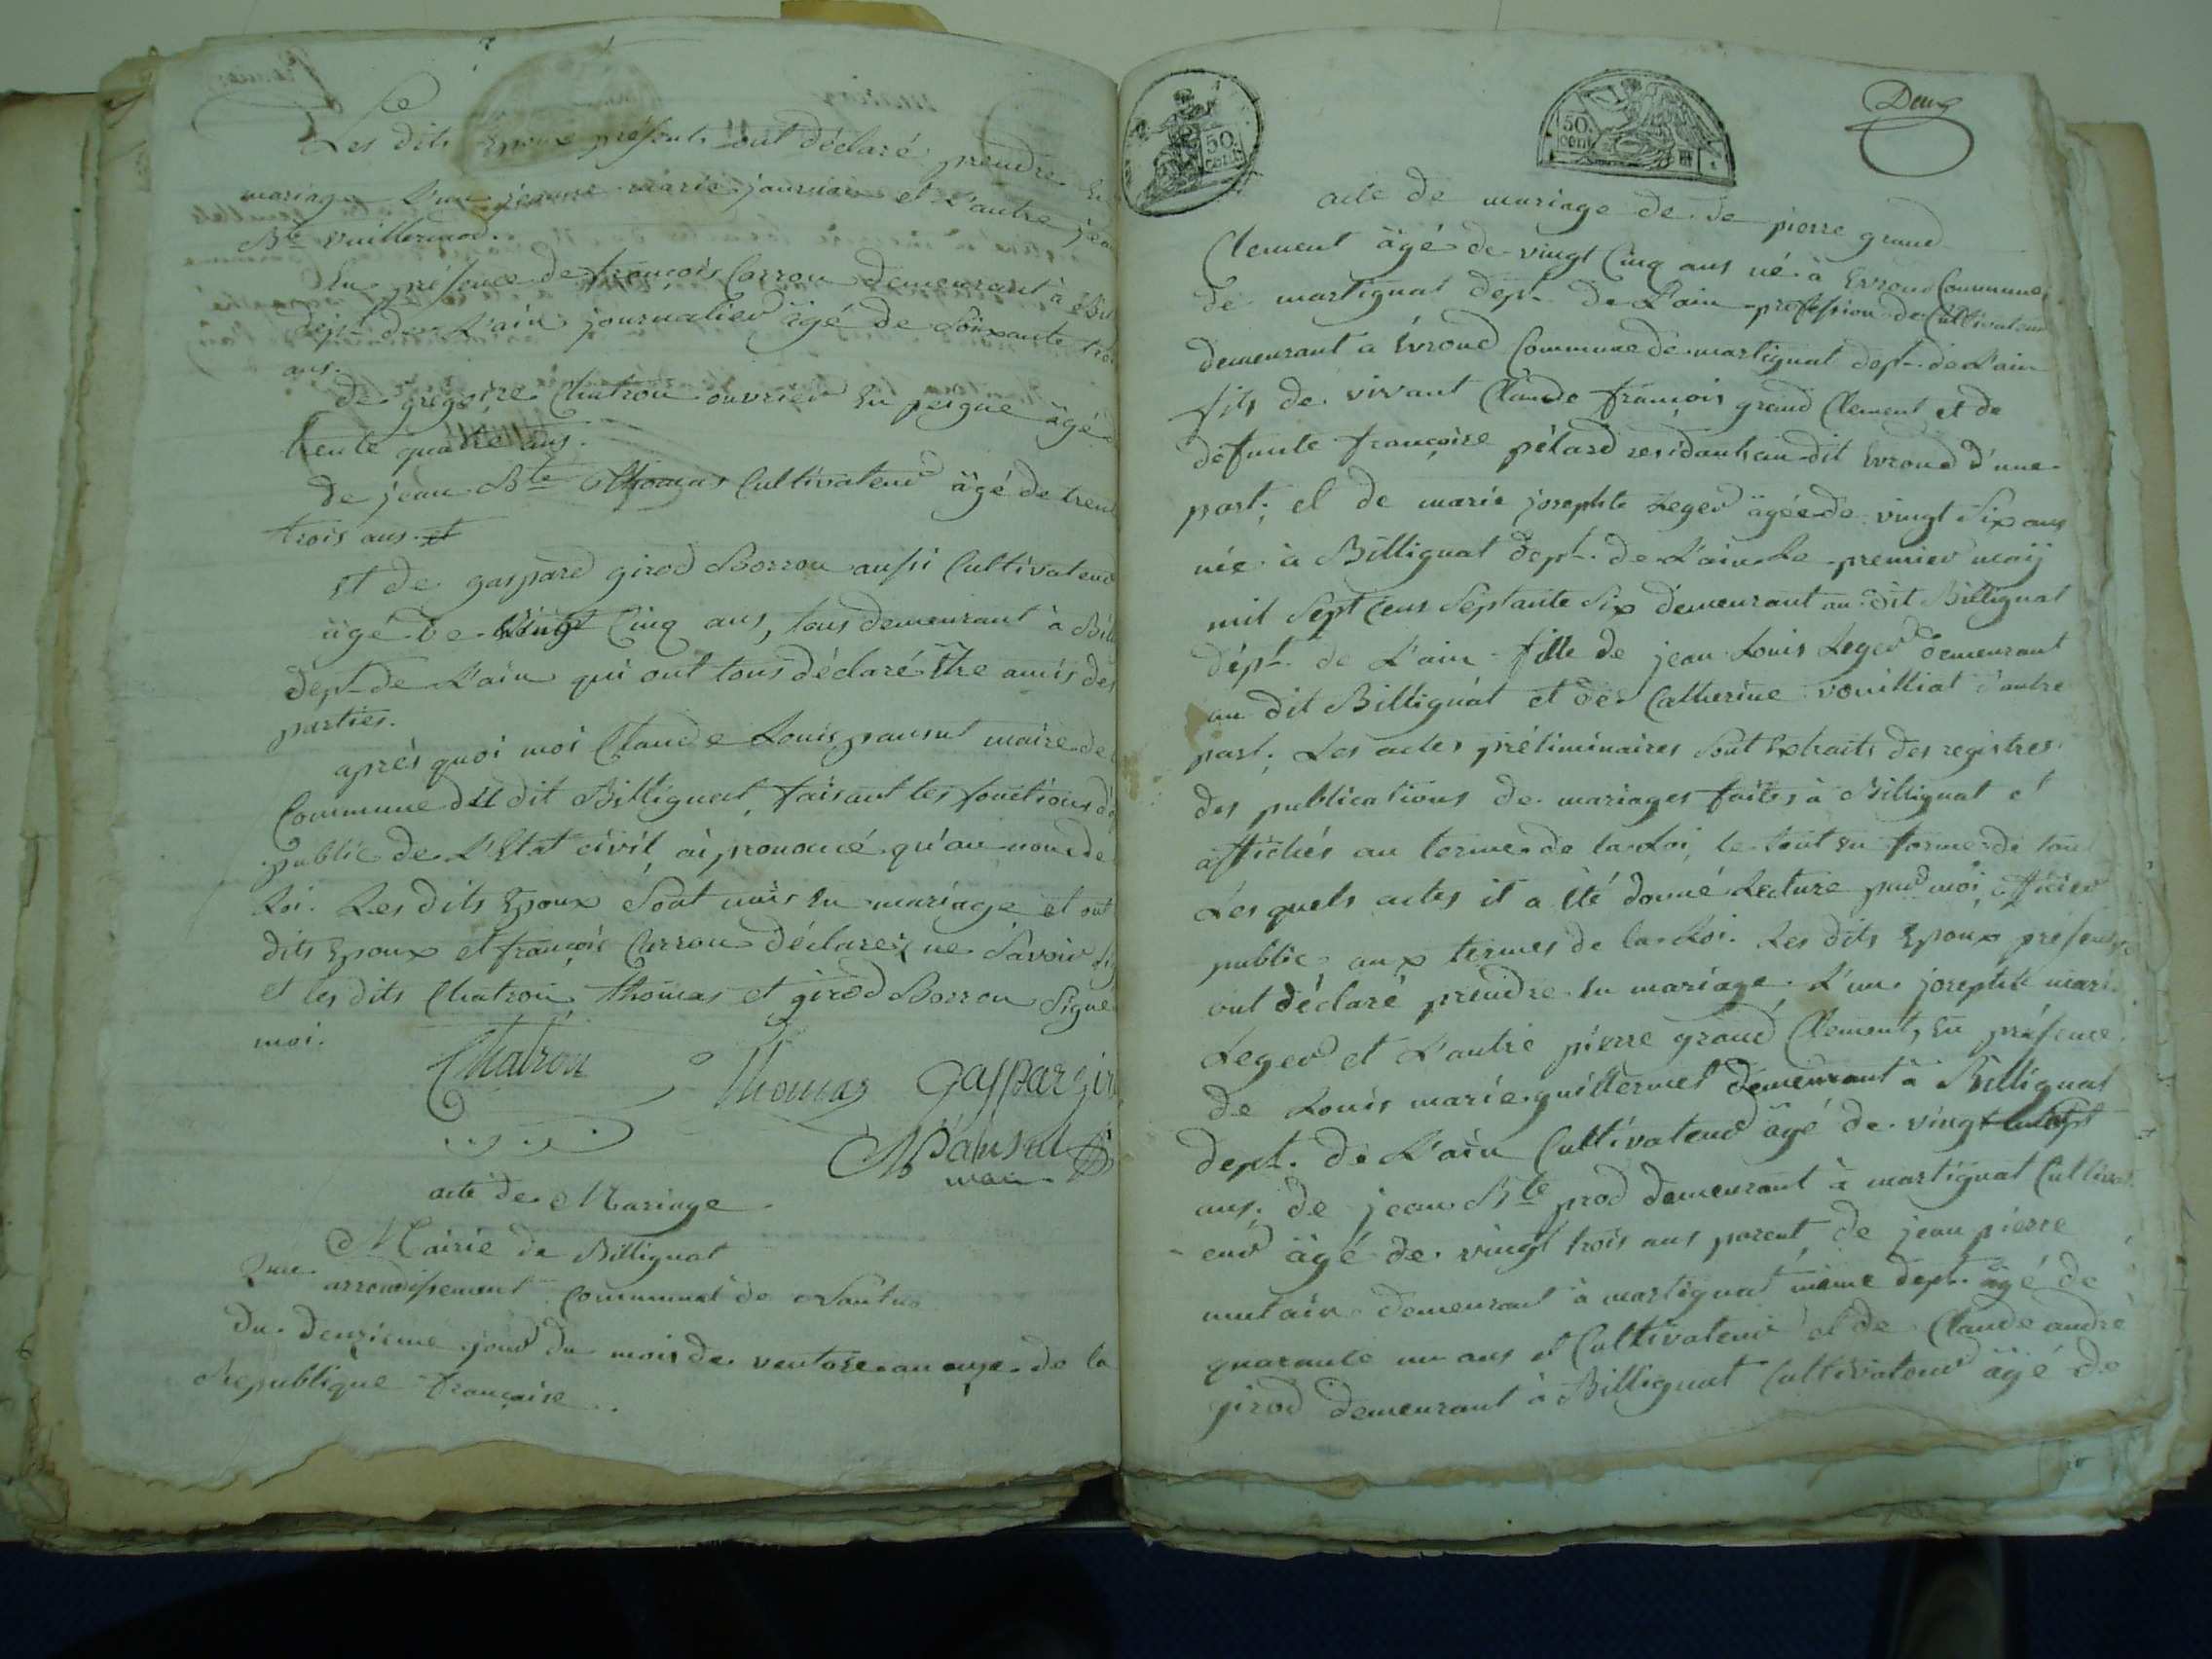 Les dits Epoux présents ont déclaré prendre en
mariage L'un jeanne marie journiau et L'autre jea
Bte vuillermod.
En présence de françois Carron demeurant à Bil
dept. de L'ain journalier âgé de Soixante tro
ans.
de gregoire Chatron ouvrier en peigne âgé
trente quatre ans.
de jean Bte Thomas Cultivateur âgé de tren
trois ans et
et de gaspard girod Borron aussi Cultivateur
âgé de Vingt Cinq ans, tous demeurant à Bil
dept. de L'ain qui ont tous déclaré être amis des
parties.
après quoi moi Claude Louis pansut maire de
Commune du dit Billignat, faisant les fonctions d'
public de L'Etat civil, ai prononcé qu'au nom de
Loi. Les dits Epoux Sont unis en mariage et ont
dits Epoux et françois Carron déclarez ne Savoir si
et les dits Chatron, Thomas et girod Borron Signe
moi.
Chatron Thomas Gaspar gir
Pansut
maire
acte de Mariage
Mairie de Billignat
arrondissement Communal de Nantua
du deuxième jour du mois de ventose an onze de la
Republique française.
50. cent. 50. cent Deux
acte de mariage de de pierre grand
Clement âgé de vingt Cinq ans né à Evrond Commune
de martignat dept. de L'ain profession de Cultivateur
demeurant à Evrond Commune de martignat dept. de L'ain
fils de vivant Claude françois grand Clement et de
defunte françoise pélard residant au dit Evrond d'une
part; et de marie josephte Leger âgée de vingt Six ans
née à Billignat dept. de L'ain Le premier maij
mil Sept Cens Septante Six demeurant au dit Billignat
dépt. de L'ain fille de jean Louis Leger demeurant
au dit Billignat et de Catherine vouilliat d'autre
part; Les actes préliminaires Sont Extraits des registres
des publications de mariages faites à Billignat et
affichés au terme de la Loi, le tout en forme de tou
Les quels actes il a été donné Lecture par moi officier
public aux termes de la Loi. Les dits Epoux presents
ont déclaré prendre en mariage L'un josephte marie
Leger et L'autre pierre grand Clement, En présence
de Louis marie guillermet demeurant à Billignat
dept. de L'ain Cultivateur âgé de vingt
ans; de jean Bte prod demeurant à martignat Cultivat
eur âgé de vingt trois ans parent, de jean pierre
mutain demeurant à martignat même dept. âgé de
quarante un ans et Cultivateur et de Claude andré
girod demeurant à Billignat Cultivateur âgé de